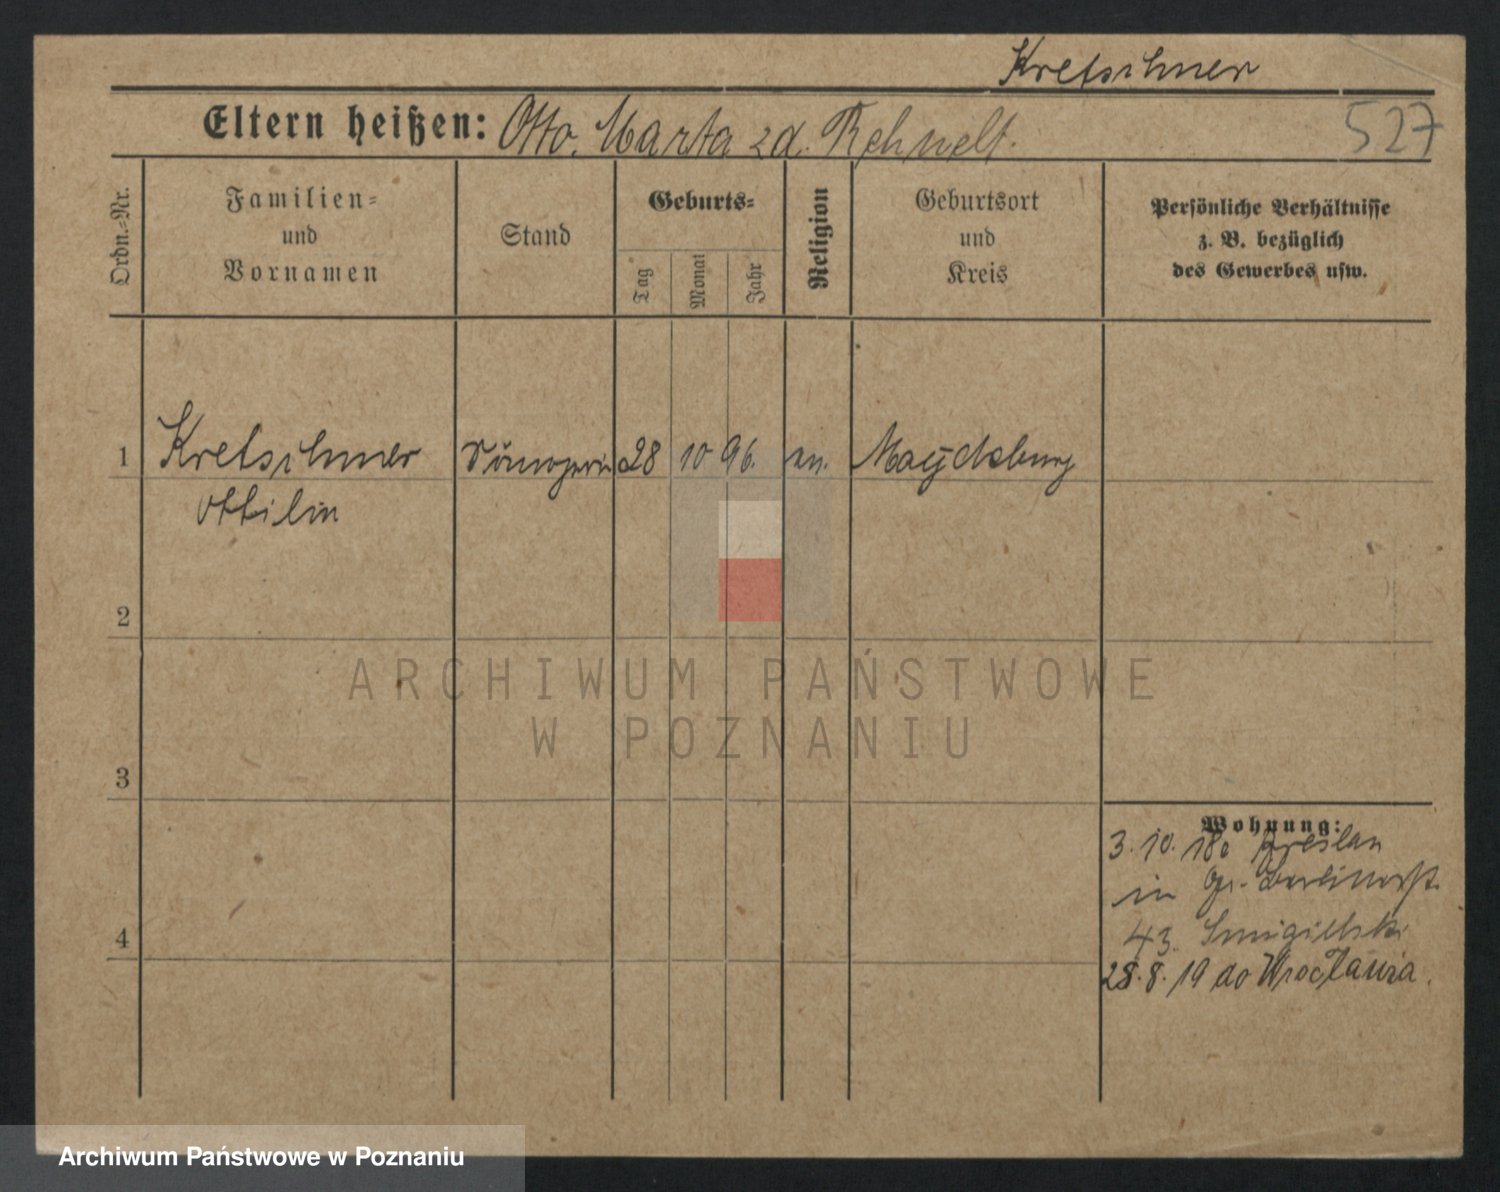 Kretschmer
Eltern heißen: Otto, Marta zd. Rehnelt.
527
Ordn.-Nr.
Familien-
und
Vornamen
Stand
Geburts-
Tag
Monat
Jahr
Religion
Geburtsort
und
Kreis
Persönliche Verhältnisse
z. B. bezüglich
des Gewerbes usw.
1 Kretschmer 28 10 96. ev. Magdeburg
Ottilie
2
3
4
Wohnung:
3. 10. 18. Breslau
in Gr. Berlinerst.
43. Smigielski
28. 8. 19 do Wrocławia.
ARCHIWUM PAŃSTWOWE
W POZNANIU
Archiwum Państwowe w Poznaniu